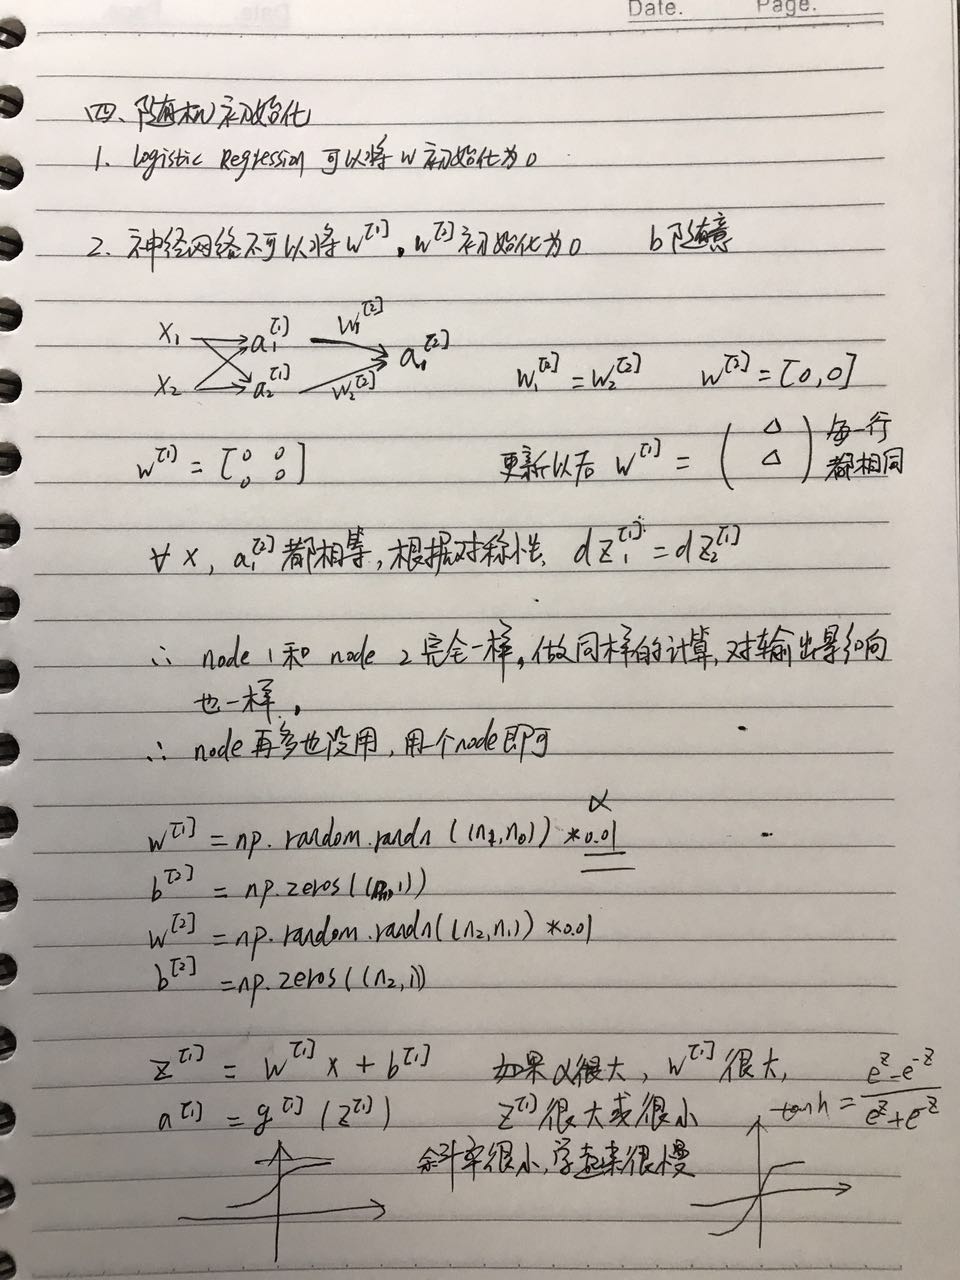 Date. Page.
四、随机初始化
1. Logistic Regression 可以将 w 初始化为0
2. 神经网络不可以将 w^[1], w^[2] 初始化为0 b随意
x₁ a₁^[1] w₁^[2] a₁^[2]
x₂ a₂^[1] w₂^[2]
w₁^[2] = w₂^[2] w^[2] = [0,0]
w^[1] = [0 0
0 0]
更新以后 w^[1] = (△
△) 每一行
都相同
∀ x, a₁^[2] 都相等, 根据对称性, dz₁^[1] = dz₂^[1]
∴ node 1 和 node 2 完全一样, 做同样的计算, 对输出影响
也一样,
∴ node 再多也没用, 用一个node即可
α
w^[1] = np.random.randn((n₁,n₀)) *0.01
b^[2] = np.zeros((,1))
w^[2] = np.random.randn((n₂,n₁)) *0.01
b^[2] = np.zeros((n₂,1))
z^[1] = w^[1] x + b^[1] 如果α很大, w^[1] 很大,
a^[1] = g^[1] (z^[1]) z^[1] 很大或很小
斜率很小, 学起来很慢
tanh = (e^z - e^-z)/(e^z + e^-z)